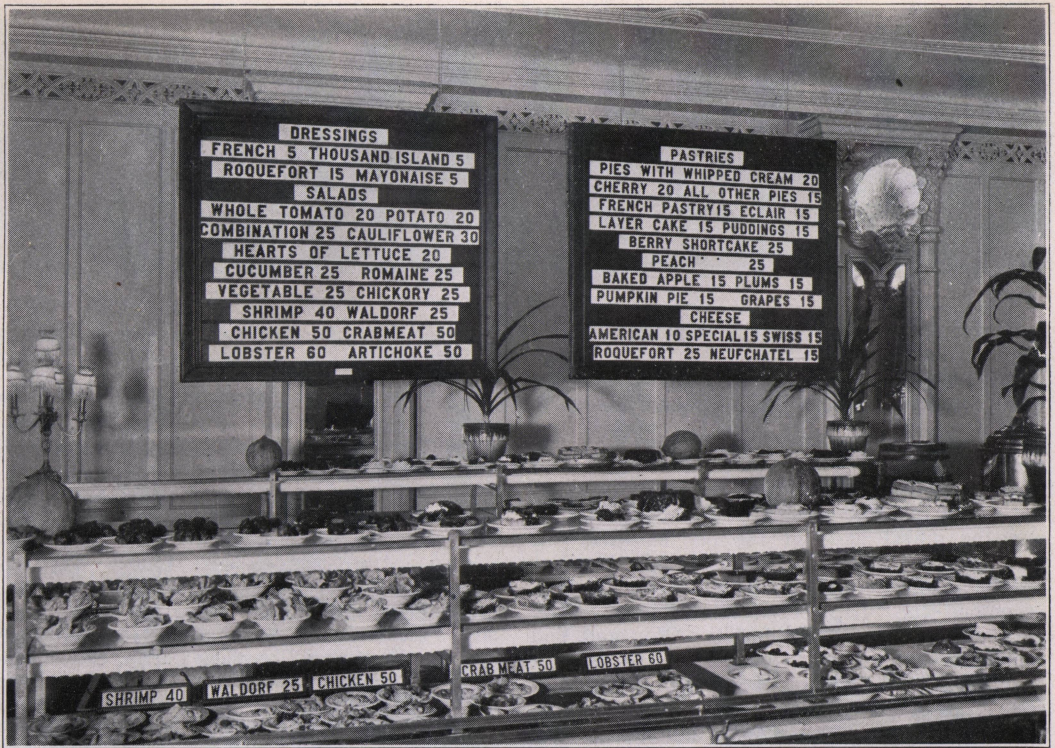 DRESSINGS
FRENCH 5 THOUSAND ISLAND 5
ROQUEFORT 15 MAYONAISE 5
SALADS
WHOLE TOMATO 20 POTATO 20
COMBINATION 25 CAULIFLOWER 30
HEARTS OF LETTUCE 20
CUCUMBER 25 ROMAINE 25
VEGETABLE 25 CHICKORY 25
SHRIMP 40 WALDORF 25
CHICKEN 50 CRABMEAT 50
LOBSTER 60 ARTICHOKE 50
PASTRIES
PIES WITH WHIPPED CREAM 20
CHERRY 20 ALL OTHER PIES 15
FRENCH PASTRY 15 ECLAIR 15
LAYER CAKE 15 PUDDINGS 15
BERRY SHORTCAKE 25
PEACH 25
BAKED APPLE 15 PLUMS 15
PUMPKIN PIE 15 GRAPES 15
CHEESE
AMERICAN 10 SPECIAL 15 SWISS 15
ROQUEFORT 25 NEUFCHATEL 15
SHRIMP 40
WALDORF 25
CHICKEN 50
CRAB MEAT 50
LOBSTER 60